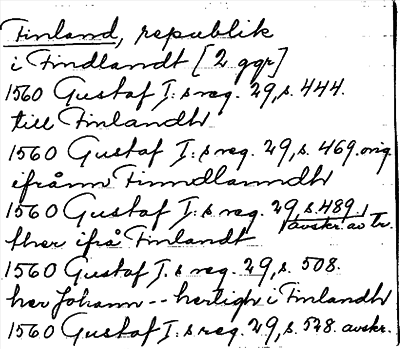 Finland, republik
i Findlandt [2 ggr]
1560 Gustaf I:s reg. 29, s. 444.
till Finlandh
1560 Gustaf I:s reg. 29, s. 469. orig.
ifrånn Finndlanndh
1560 Gustaf I:s reg. 29, s. 489,
avskr. av tr.
ther ifrå Finlandt
1560 Gustaf I:s reg. 29, s. 508.
her Johann -- herligh i Finlandh
1560 Gustaf I:s reg. 29, s. 528. avskr.